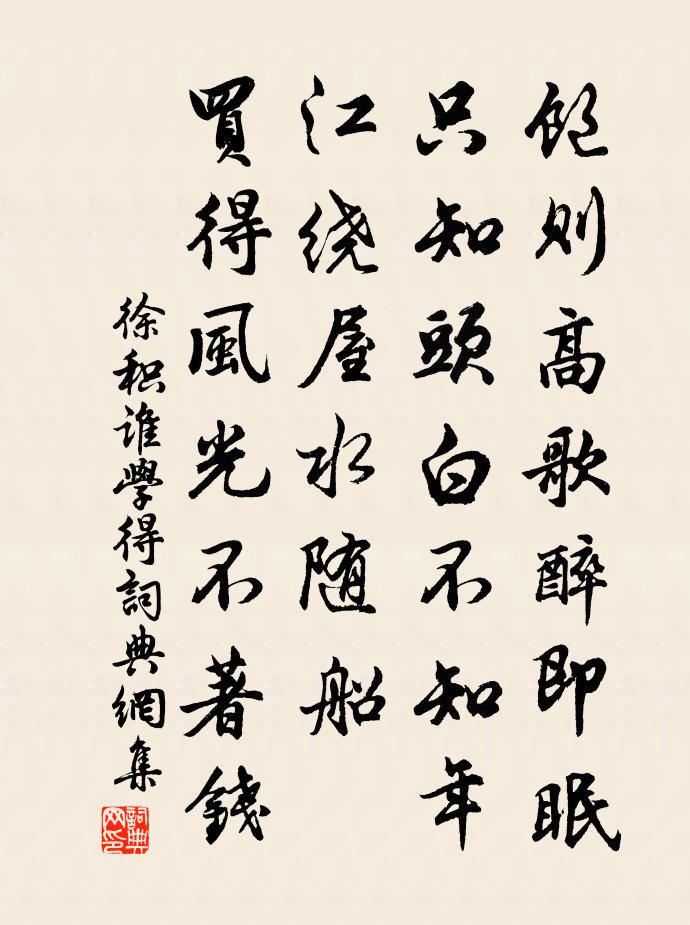 飽则高歌醉即眠
只知頭白不知年
江绕屋水随船
買得風光不著錢
徐积谁學得詞典網集
詞典网印